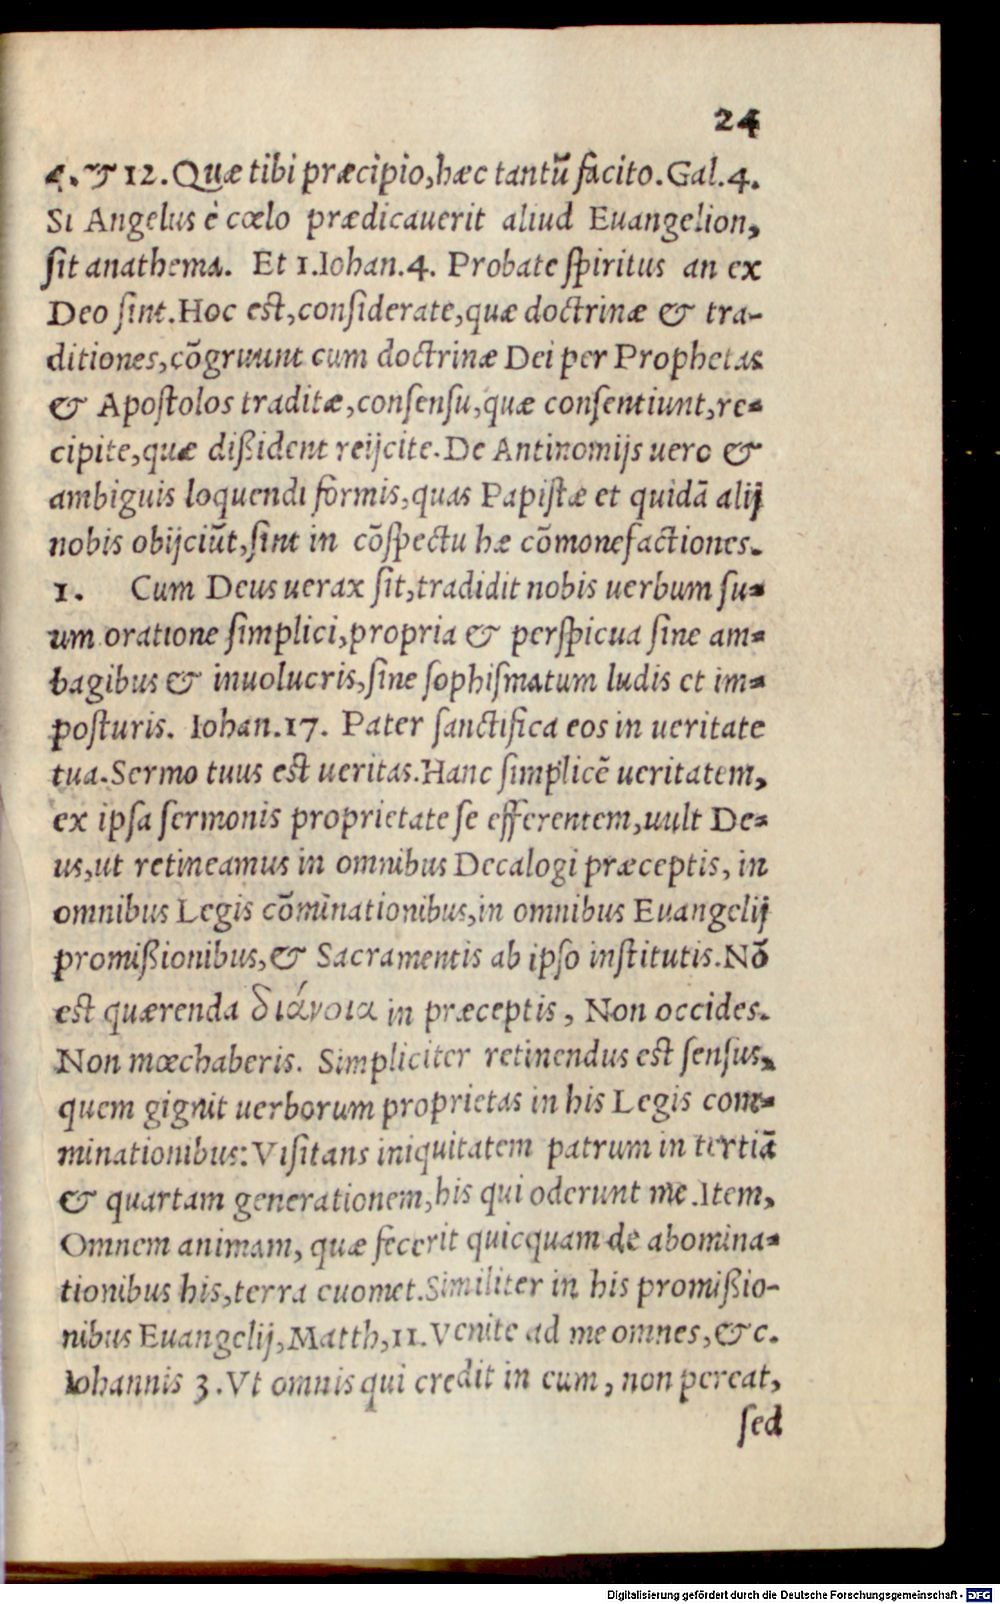 24
4. & 12. Quæ tibi præcipio, hæc tantũ facito. Gal. 4.
Si Angelus è cœlo prædicauerit aliud Euangelion,
ſit anathema. Et 1. Iohan. 4. Probate ſpiritus an ex
Deo ſint. Hoc eſt, conſiderate, quæ doctrinæ & tra-
ditiones, cõgruunt cum doctrinæ Dei per Prophetas
& Apoſtolos traditæ, conſenſu, quæ conſentiunt, re-
cipite, quæ dißident reijcite. De Antinomijs uero &
ambiguis loquendi formis, quas Papiſtæ et quidã alij
nobis obijciũt, ſint in cõſpectu hæ cõmonefactiones.
1. Cum Deus uerax ſit, tradidit nobis uerbum ſu-
um oratione ſimplici, propria & perſpicua ſine am-
bagibus & inuolucris, ſine ſophiſmatum ludis et im-
poſturis. Iohan. 17. Pater ſanctifica eos in ueritate
tua. Sermo tuus eſt ueritas. Hanc ſimplicẽ ueritatem,
ex ipſa ſermonis proprietate ſe efferentem, uult De-
us, ut retineamus in omnibus Decalogi præceptis, in
omnibus Legis cõminationibus, in omnibus Euangelij
promißionibus, & Sacramentis ab ipſo inſtitutis. Nõ
eſt quærenda διάνοια in præceptis, Non occides.
Non mœchaberis. Simpliciter retinendus eſt ſenſus,
quem gignit uerborum proprietas in his Legis com-
minationibus: Viſitans iniquitatem patrum in tertiã
& quartam generationem, his qui oderunt me. Item,
Omnem animam, quæ fecerit quicquam de abomina-
tionibus his, terra euomet. Similiter in his promißio-
nibus Euangelij, Matth, 11. Venite ad me omnes, &c.
Iohannis 3. Vt omnis qui credit in eum, non pereat,
ſed
Digitalisierung gefördert durch die Deutsche Forschungsgemeinschaft - DFG